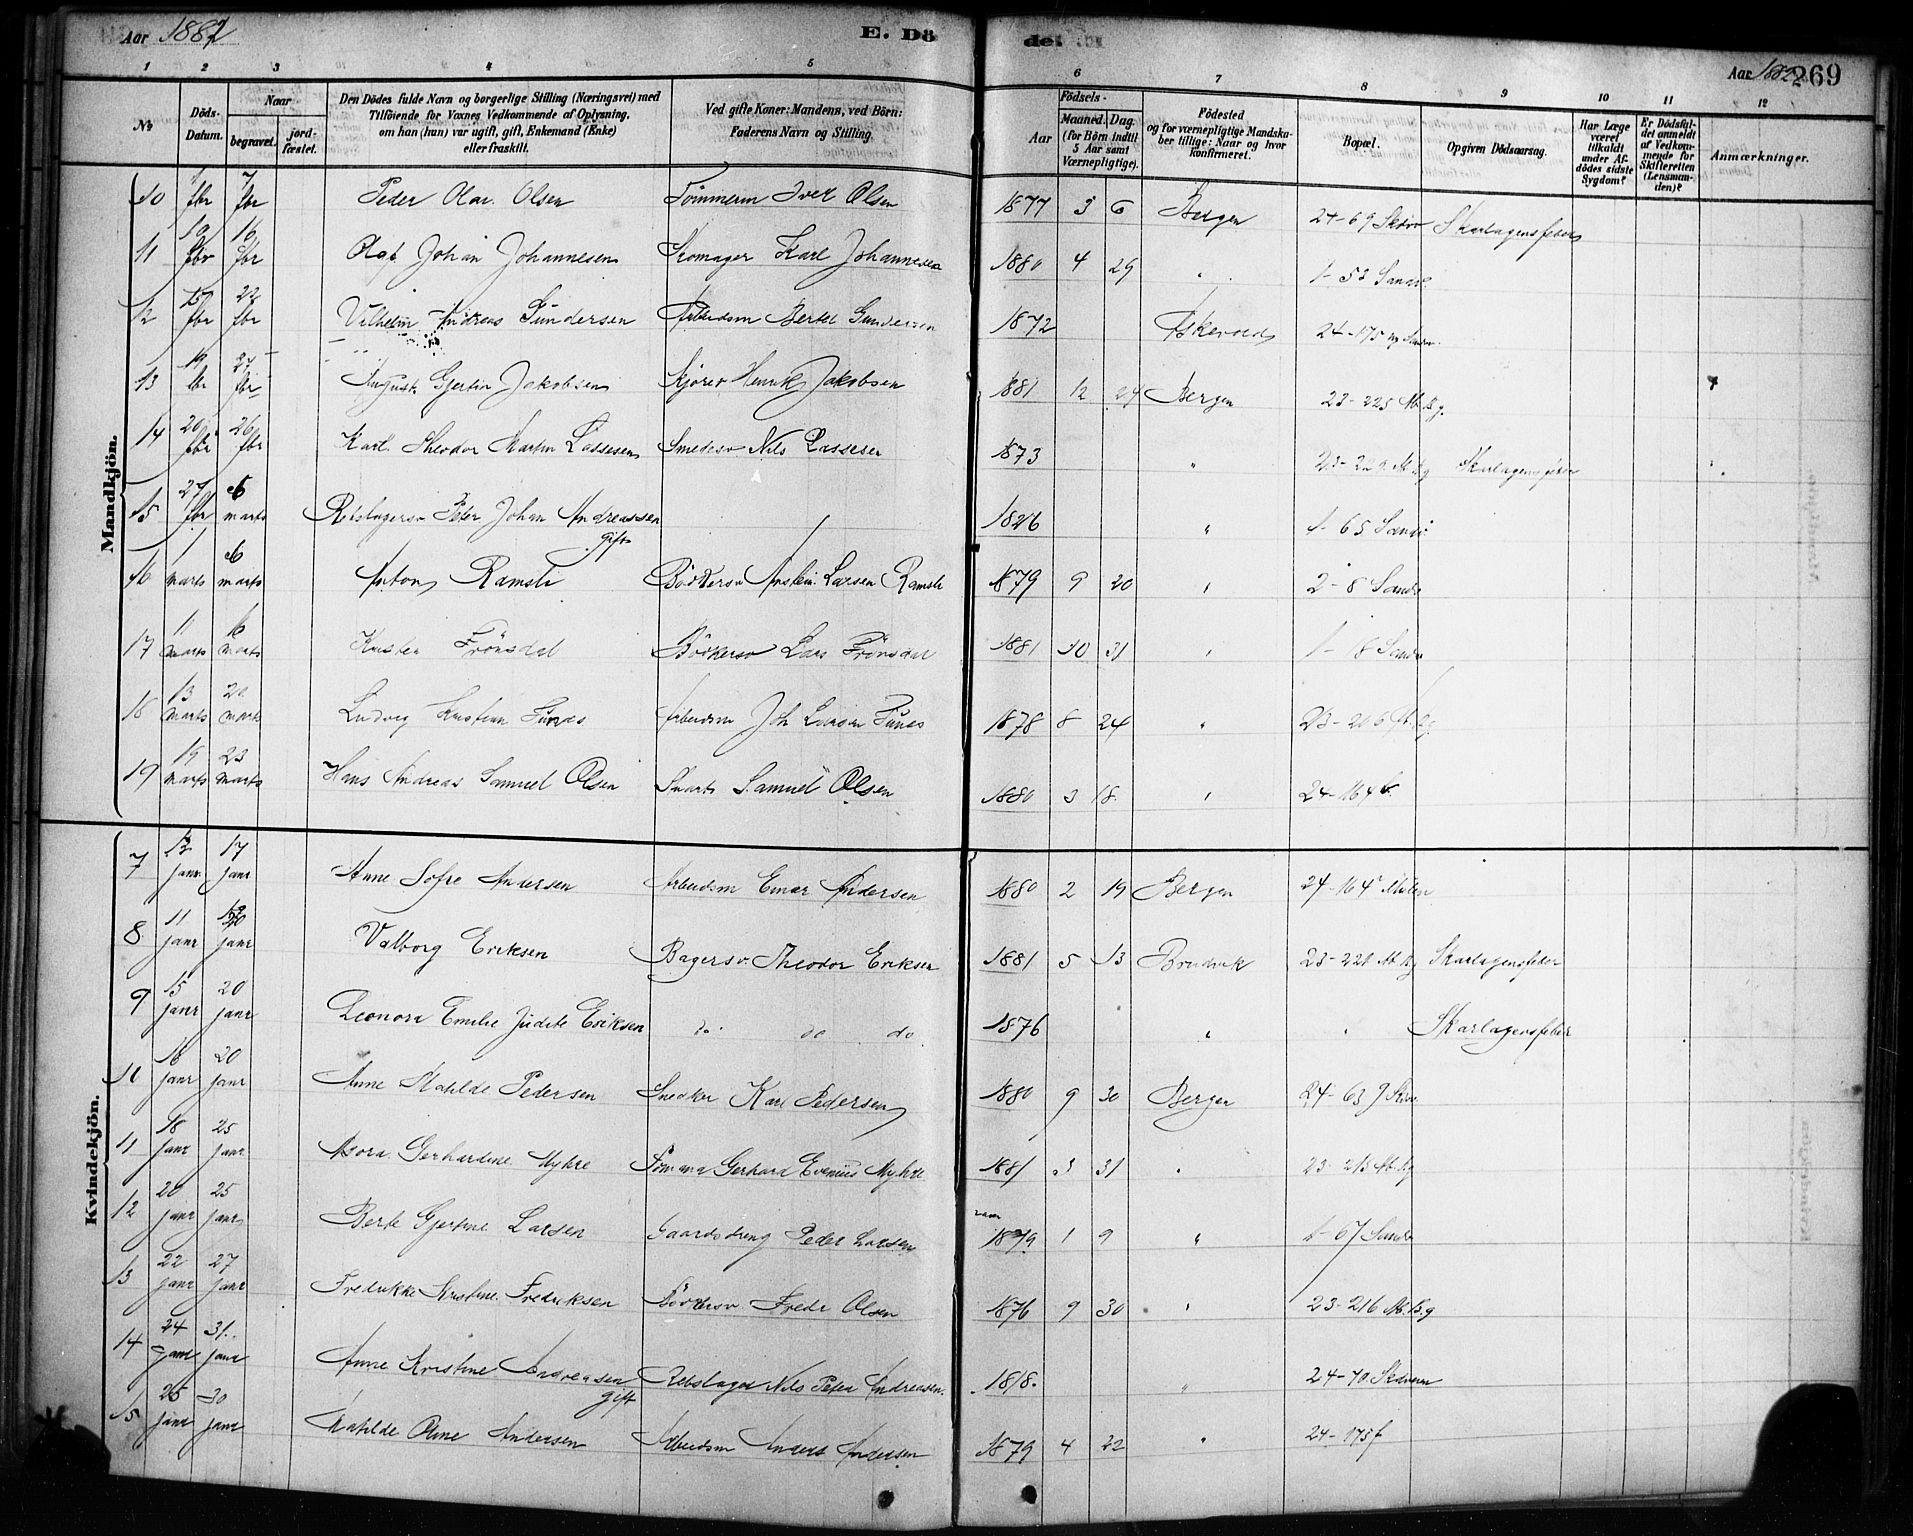 Aar 1882
E. Dö
de.
Aar 1882
269
1 2 3 4 5 6 7 8 9 10 11 12
No
Döds-Datum.
Naar
begravet.
jord-fæstet.
Den Dödes fulde Navn og borgerlige Stilling (Næringsvei) med
Tilföiende for Voxnes Vedkommende af Oplysning,
om han (hun) var ugift, gift, Enkemand (Enke)
eller fraskilt.
Ved gifte Koner: Mandens, ved Börn:
Faderens Navn og Stilling.
Födsels-
Aar
Maaned. Dag.
(for Börn indtil
5 Aar samt
Værnepligtige).
Födested
og for værnepligtige Mandska-
ber tillige: Naar og hvor
konfirmeret.
Bopæl.
Opgiven Dödsaarsag.
Har Læge
været
tilkaldt
under Af-
dödes sidste
Sygdom?
Er Dödsfal-
det anmeldt
af Vedkom-
mende for
Skifteretten
(Lensman-
den)?
Anmærkninger.
Mandkjön.
10 fbr 7 fbr Peder Olai Olsen Tömmerm Iver Olsen 1877 3 6 Bergen 24-69 Skarlagensfeber
11 10 fbr 16 fbr Olaf Johan Johannesen Skomager Karl Johannesen 1880 4 29 " 1-53 Sandv
12 15 fbr 22 fbr Vilhelm Andreas Gundersen Arbeidsm Bertel Gundersen 1872 Askevold 24-175
13 19 fbr 27 fbr August Gjertin Jakobsen Kjörer Henrik Jakobsen 1881 12 24 Bergen 23-225 M.Bg.
14 20 fbr 26 fbr Karl Theodor Martin Lassesen Smedesv Nils Lassesen 1873 " M.Bg Skarlagensfeber
15 27 fbr 6 marts Rebslagersv Peter Johan Andreassen
gift
1826 " 1-65 Sandv
16 1 marts 6 marts Anton Ramsli Bödkersv Anstein Larsen Ramsli 1879 9 20 " 2-8 Sandv
17 11 marts 16 marts Kristen Frönsdal Bödkersv Lars Frönsdal 1881 10 31 " 1-18 Sandv
18 13 marts 20 marts Ludvig Kristian Funes Arbeidsm Joh Larsen Funes 1878 8 24 " 23-206 M.Bg
19 19 marts 23 marts Hans Andreas Samuel Olsen Samuel Olsen 1880 3 18 " 24-164
Kvindekjön.
7 12 janr 17 janr Anne Sofie Andersen Arbeidsm Einar Andersen 1880 2 19 Bergen 24-164 Mulen
8 11 janr janr Valborg Eriksen Bagersv Theodor Eriksen 1881 5 13 Bruvik 23-221 M.Bg Skarlagensfeber
9 15 janr 20 janr Leonora Emilie Judite Eriksen do do do 1876 " " Skarlagensfeber
10 16 janr 20 janr Anne Matilde Pedersen Snedker Karl Pedersen 1880 9 30 Bergen 24-63
11 18 janr 25 janr Gerhardine Myhre Gerhard Evenius Myhre 1881 3 31 " 23-213 M.Bg
12 20 janr 25 janr Berte Gjertine Larsen Gaardsdreng Peder Larsen 1879 1 9 " 1-67 Sandv
13 22 janr 27 janr Fredrikke Kristine Fredriksen Bödkersv Fredr Olsen 1876 9 30 " 23-216 M.Bg
14 24 janr 31 janr Anne Kristine Andreasen
gift
Rebslager Nils Peter Andreasen 1818 " 24-70 Skiveren
15 25 janr 30 janr Matilde Oline Andersen Arbeidsm Anders Andersen 1879 4 22 " 24-175f